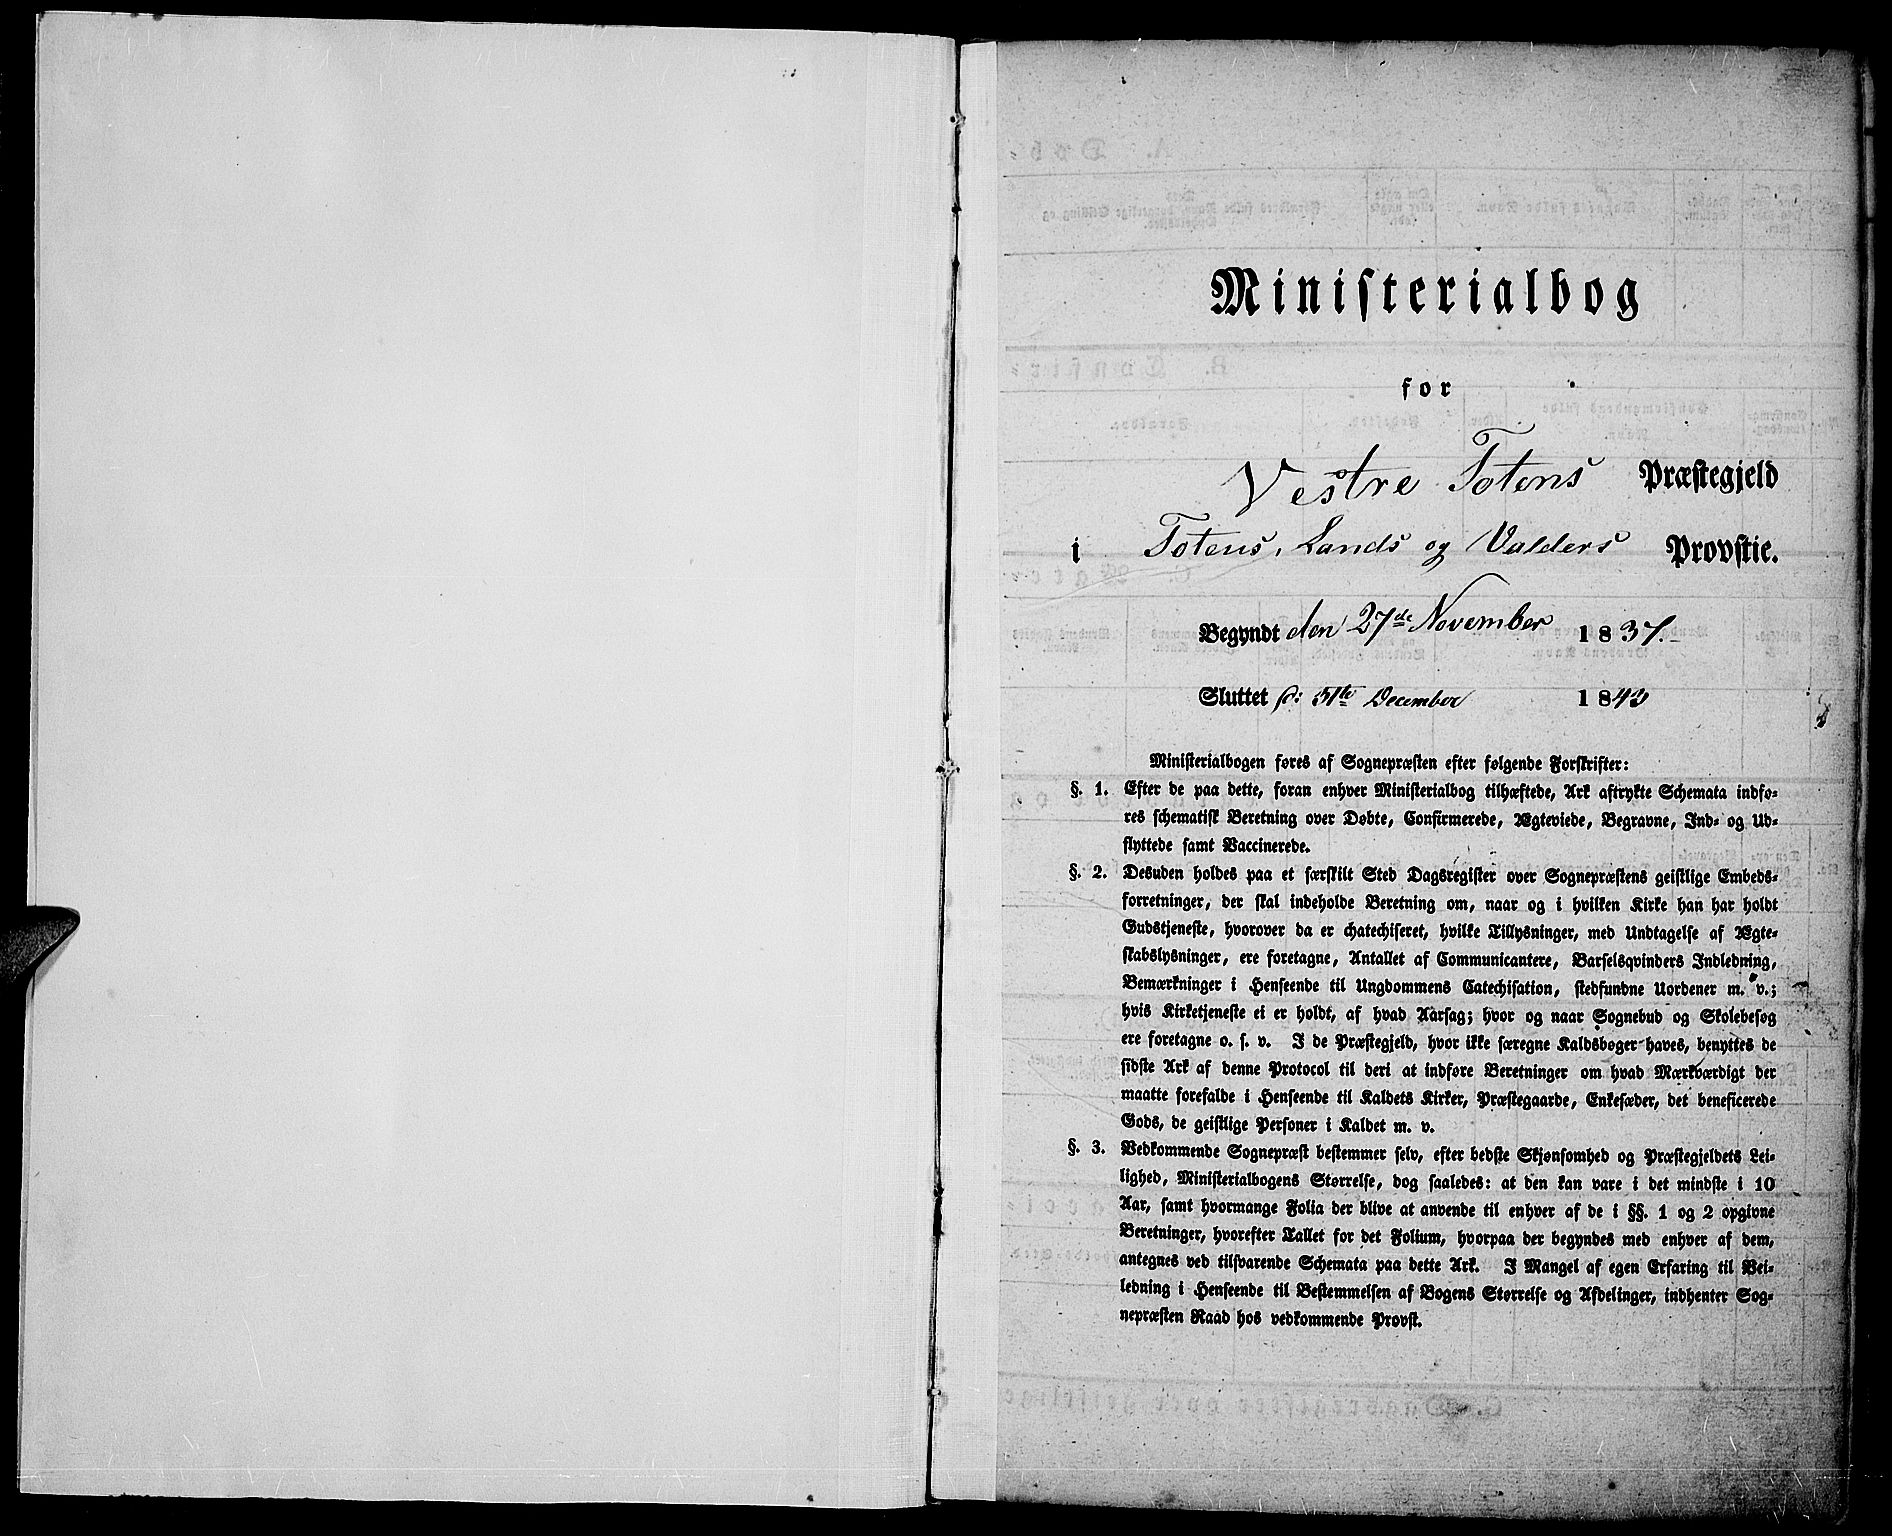 Ministerialbog
for
Vestre Totens Præstegjeld
i Totens, Lands og Valders Provstie.
Begyndt den 27de November 1837.
Sluttet d: 31te December 1843
Ministerialbogen føres af Sognepræsten efter følgende Forskrifter:
§. 1. Efter de paa dette, foran enhver Ministerialbog tilhæftede, Ark aftrykte Schemata indfø-
res schematisk Beretning over Døbte, Confirmerede, Ægteviede, Begravne, Ind- og Ud-
flyttede samt Vaccinerede.
§. 2. Desuden holdes paa et særskilt Sted Dagsregister over Sognepræstens geistlige Embeds-
forretninger, der skal indeholde Beretning om, naar og i hvilken Kirke han har holdt
Gudstjeneste, hvorover da er chatechiseret, hvilke Tillysninger, med Undtagelse af Ægte-
skabslysninger, ere foretagne, Antallet af Communicantere, Barselqvinders Indledning,
Bemærkninger i Henseende til Ungdommens Catechisation, stedfundne Uordener m. v.;
hvis Kirketjeneste ei er holdt, af hvad Aarsag; hvor og naar Sognebud og Skolebesøg
ere foretagne o. s. v. I de Præstegjeld, hvor ikke særegne Kaldsbøger haves, benyttes de
sidste Ark af denne Protocol til deri at indføre Beretninger om hvad Mærkværdigt der
maatte forefalde i Henseende til Kaldets Kirker, Præstegaarde, Enkesæder, det beneficerede
Gods, de geistlige Personer i Kaldet m. v.
§. 3. Vedkommende Sognepræst bestemmer selv, efter bedste Skjønsomhed og Præstegjeldets Lei-
lighed, Ministerialbogens Størrelse, dog saaledes: at den kan vare i det mindste i 10
Aar, samt hvormange Folia der blive at anvende til enhver af de i §§. 1 og 2 opgivne
Beretninger, hvorefter Tallet for det Folium, hvorpaa der begyndes med enhver af dem,
antegnes ved tilsvarende Schemata paa dette Ark. I Mangel af egen Erfaring til Vei-
ledning i Henseende til Bestemmelsen af Bogens Størrelse og Afdelinger, indhenter Sog-
nepræsten Raad hos vedkommende Provst.